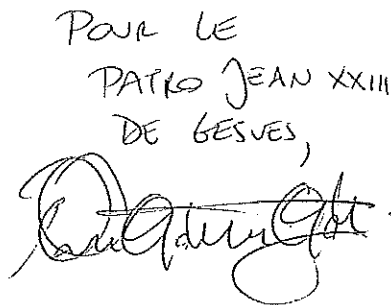 POUR LE
PATRO JEAN XXIII
DE GESVES,